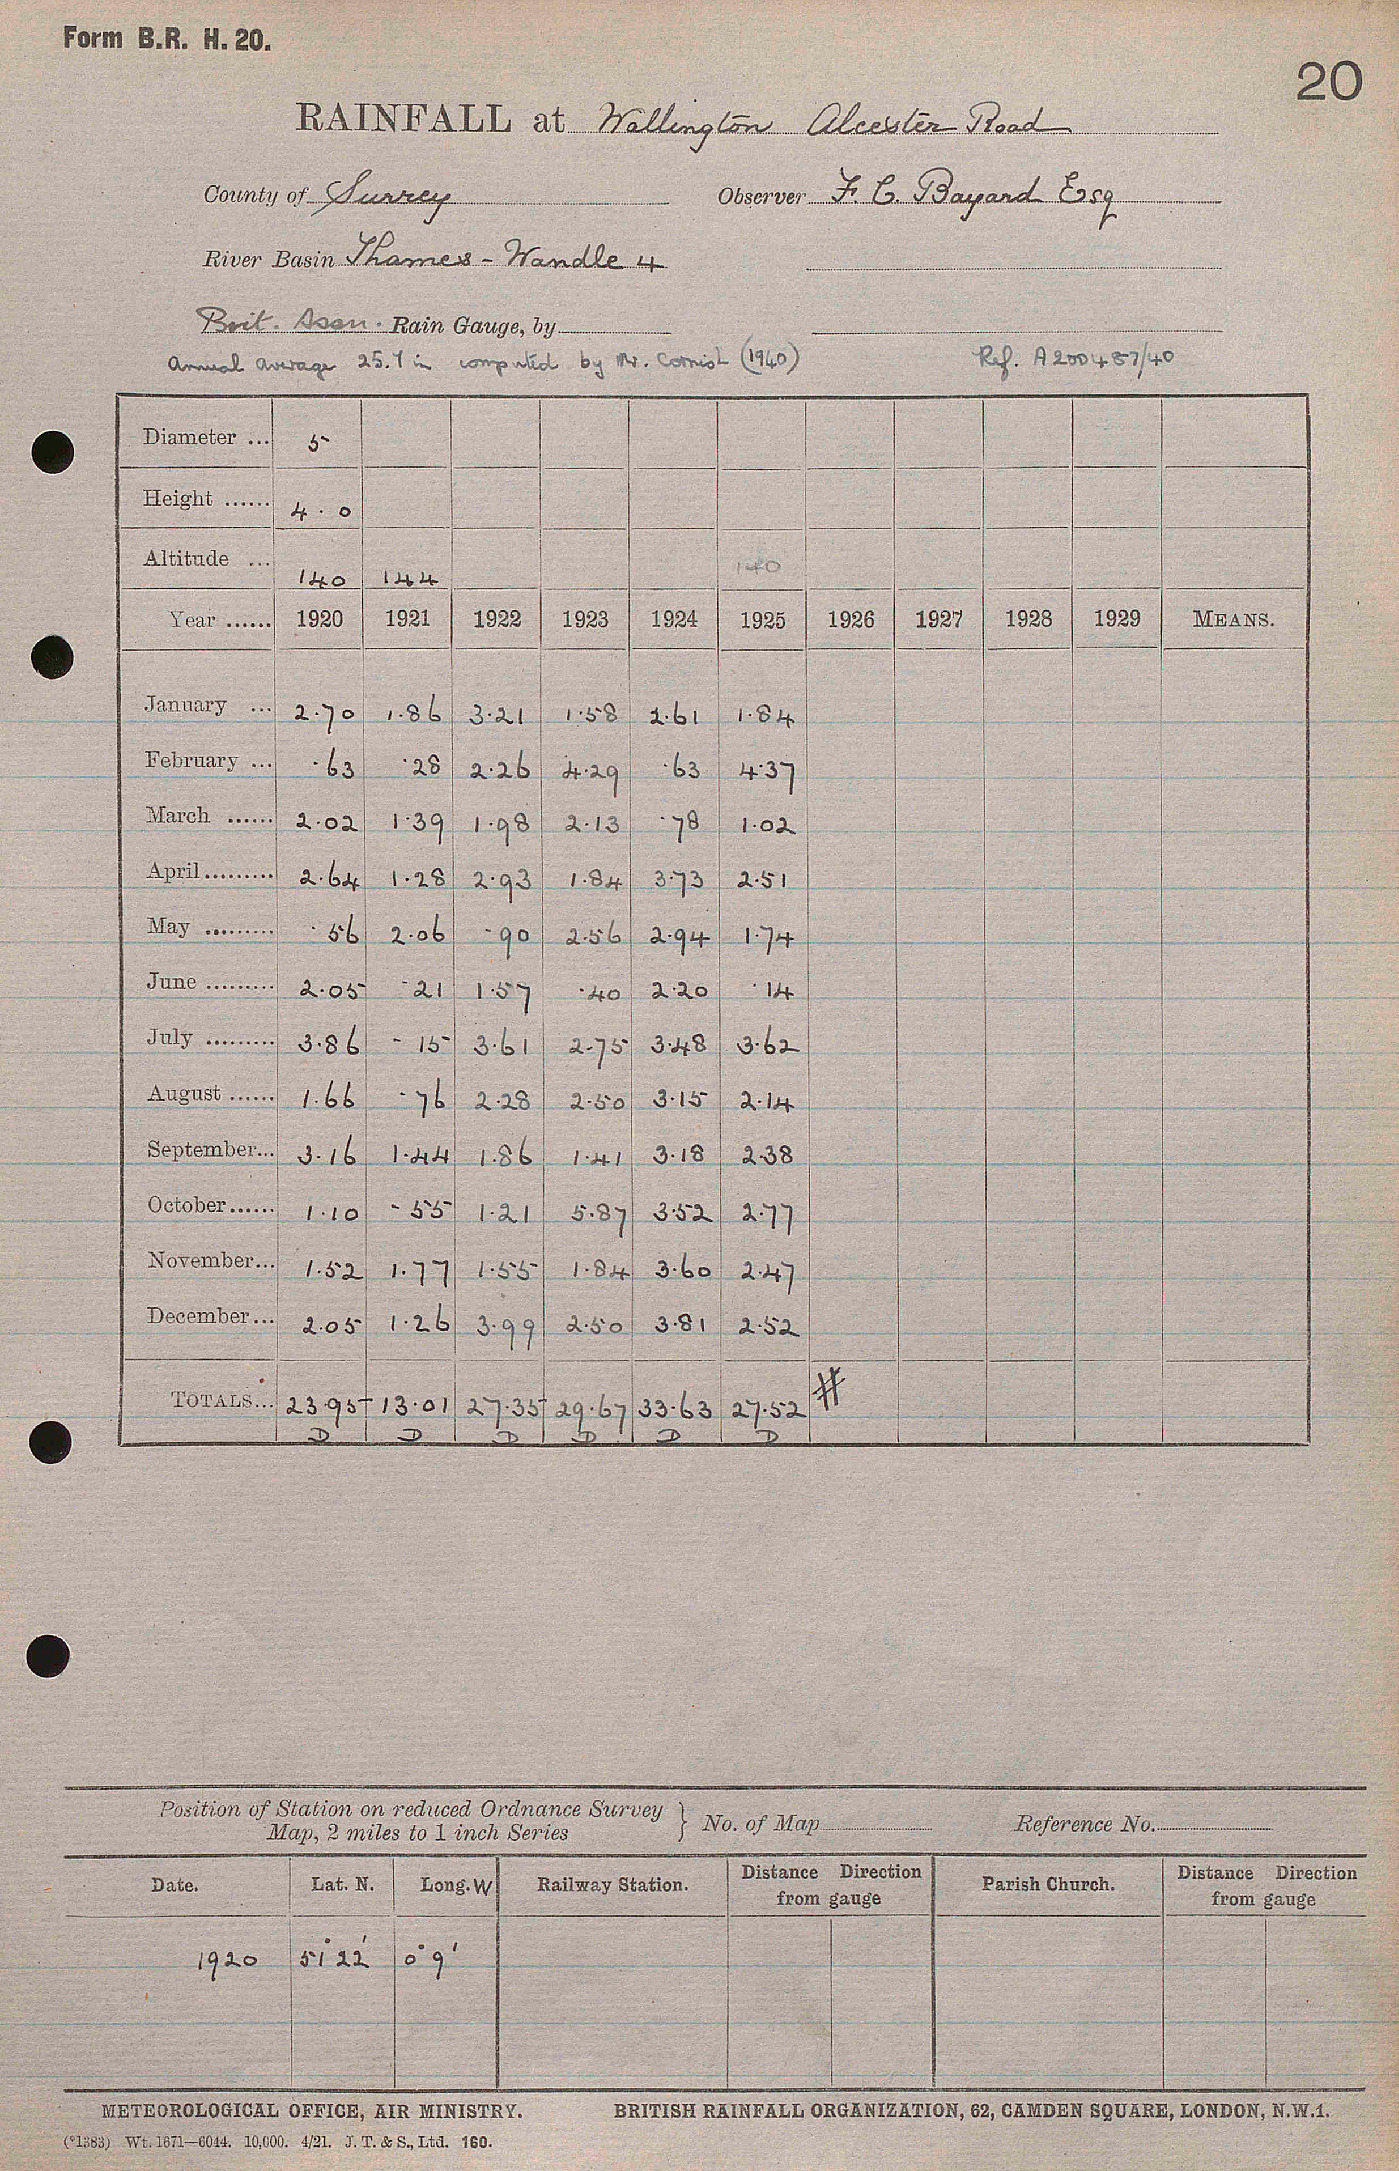 Form B.R. H. 20.
20
RAINFALL at Wallington Alcester Road
County of Surrey Observer F. C. Bayard Esq
River Basin Thames - Wandle 4
Brit. Assn. Rain Gauge, by
Annual average 25.1 in computed by Mr. Cornish (1940) Ref. A200487/40
Diameter ... 5
Height ...... 4.0
Altitude ... 140 144 140
Year ...... 1920 1921 1922 1923 1924 1925 1926 1927 1928 1929 MEANS.
January ... 2.70 1.86 3.21 1.58 2.61 1.84
February ... .63 .28 2.26 4.29 .63 4.37
March ...... 2.02 1.39 1.98 2.13 .78 1.02
April ......... 2.64 1.28 2.93 1.84 3.73 2.51
May ......... .56 2.06 .90 2.56 2.94 1.74
June ......... 2.05 .21 1.57 .40 2.20 .14
July ......... 3.86 .15 3.61 2.75 3.48 3.62
August ...... 1.66 .76 2.28 2.50 3.15 2.14
September... 3.16 1.44 1.86 1.41 3.18 2.38
October...... 1.10 .55 1.21 5.87 3.52 2.77
November... 1.52 1.77 1.55 1.84 3.60 2.47
December... 2.05 1.26 3.99 2.50 3.81 2.52
TOTALS... 23.95 13.01 27.35 29.67 33.63 27.52 #
D D D D D D
Position of Station on reduced Ordnance Survey
Map, 2 miles to 1 inch Series } No. of Map Reference No.
Date. Lat. N. Long. W Railway Station. Distance Direction from gauge Parish Church. Distance Direction from gauge
1920 51° 22' 0° 9'
METEOROLOGICAL OFFICE, AIR MINISTRY. BRITISH RAINFALL ORGANIZATION, 62, CAMDEN SQUARE, LONDON, N.W.1.
(*1383) Wt. 1671—6044. 10,000. 4/21. J. T. & S., Ltd. 160.